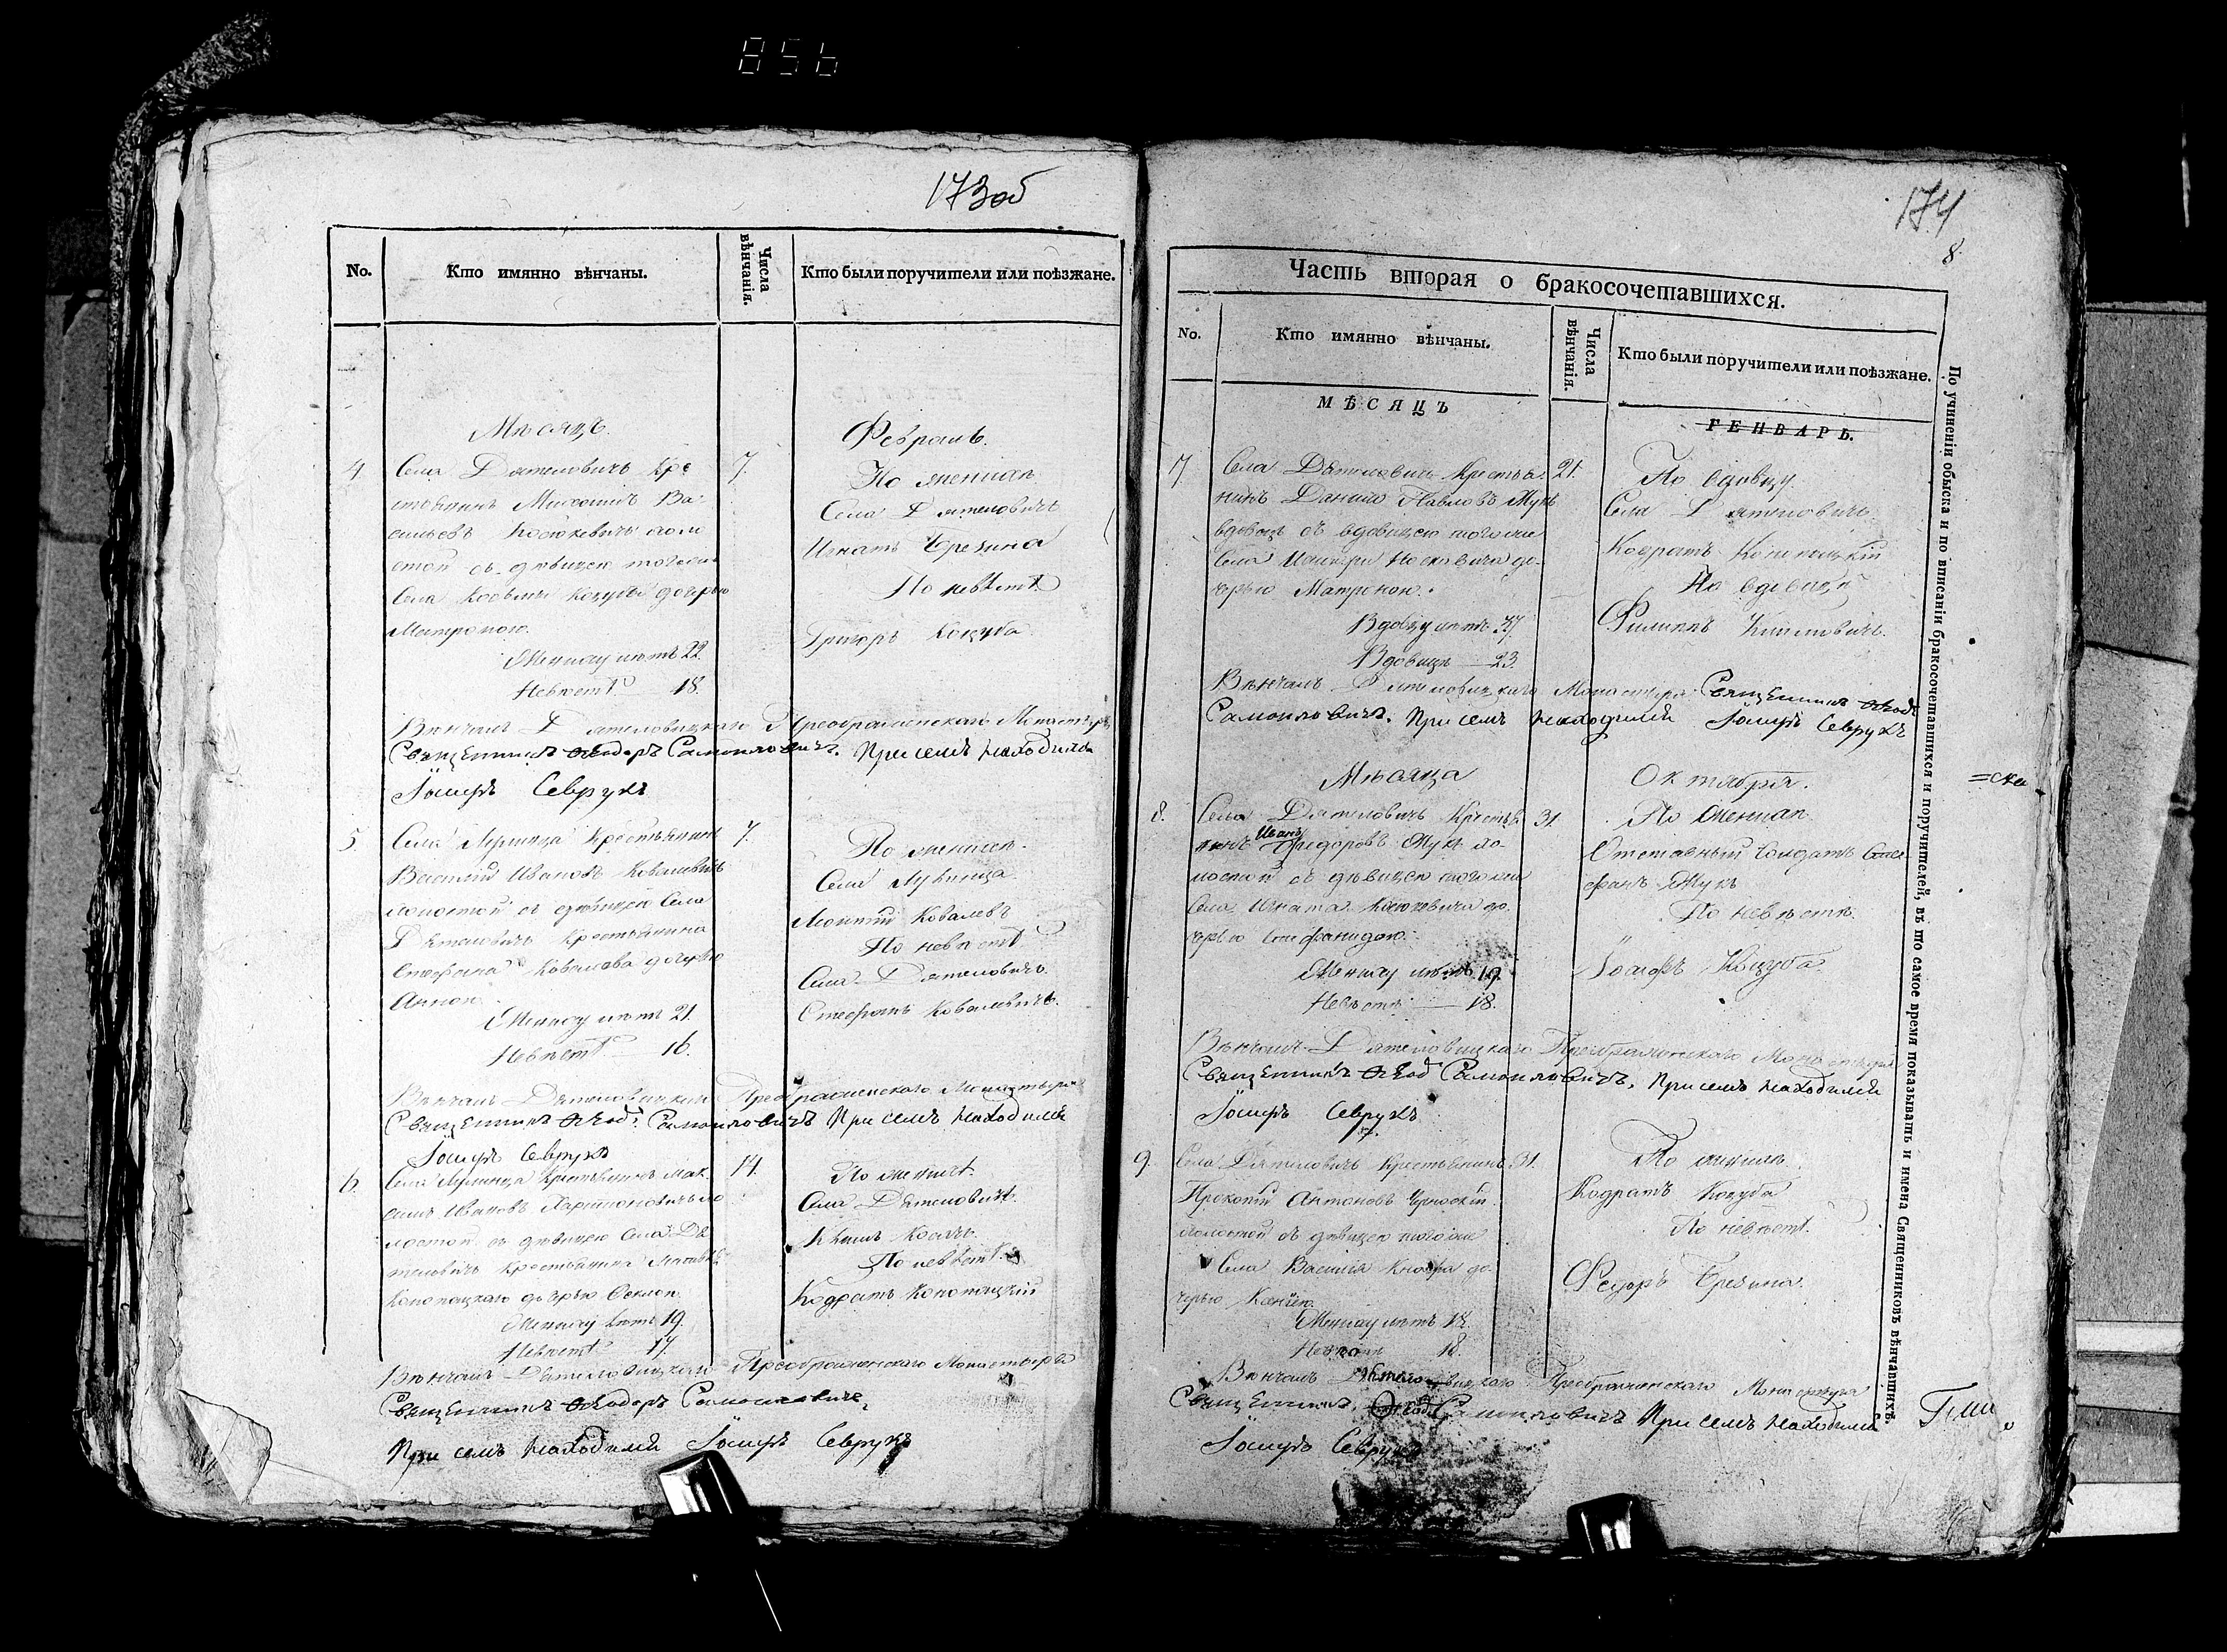 856
173об
No.
Кто имянно вѣнчаны.
Числа вѣнчанія.
Кто были поручители или поѣзжане.
Мѣсяцъ.
Февраль.
4
Села Дятеловичъ Кре
стьянинъ Михаилъ Ва-
сильевъ Костюкевичъ холо
стой съ дѣвицею тогожъ
Села Косьмы Коцубы дочерью
Матроною.
Жениху лѣтъ 22.
Невѣстѣ — 18.
7.
По женихѣ
Села Дятеловичъ
Игнатъ Брезина
По невѣстѣ
Григоръ Коцуба
Вѣнчалъ Дятеловицкаго Преображенскаго Монастыря
Священникъ Ѳеодоръ Самойловичъ. При семъ находился
Іосифъ Севрукъ
5.
Села Лунинца Крестьянинъ
Василій Ивановъ Ковалевичъ
холостой съ дѣвицею Села
Дятеловичъ Крестьянина
Стефана Ковалева дочерью
Анною
Жениху лѣтъ 21.
Невѣстѣ — 16.
7.
По женихѣ.
Села Лунинца
Ковалевъ
По невѣстѣ
Села Дятеловичъ
Стефанъ Ковалевичъ.
Вѣнчалъ Дятеловицкій Преображенскаго Монастыря
Священникъ Ѳеод: Самойловичъ При семъ находился
Іосифъ Севрукъ
6.
Села Лунинца Крестьянинъ Мак-
симъ Ивановъ Харитоновичъ хо
лостой съ дѣвицею Села Дя
теловичъ Крестьянина
Конопацкаго дочерью Ѳеклою.
Жениху лѣтъ 19.
Невѣстѣ — 17.
14.
По женихѣ.
Села Дятеловичъ.
По невѣстѣ.
Кодратъ Конопацкій
Вѣнчалъ Дятеловицкаго Преображенскаго Монастыря
Священникъ Ѳеодоръ Самойловичъ,
При семъ находился Іосифъ Севрукъ
174
8.
Часть вторая о бракосочетавшихся.
No.
Кто имянно вѣнчаны.
Числа вѣнчанія.
Кто были поручители или поѣзжане.
МѢСЯЦЪ
ГЕНВАРЬ.
7.
Села Дятеловичъ Крестья-
нинъ Данило Павловъ Жукъ
вдовецъ съ вдовицею тогожъ
Села дo-
черью Матроною.
Вдовцу лѣтъ 37
Вдовицѣ — 23.
21.
По вдовцу
Села Дятеловичъ
Кодратъ Конопацкій
По вдовицѣ
Филиппъ
Вѣнчалъ Дятеловицкаго Монастыря Священникъ Ѳеод:
Самойловичъ. При семъ находился Іосифъ Севрукъ
Мѣсяца
Октября.
8.
Села Дятеловичъ Крестья-
нинъ Иванъ Федоровъ Жукъ хо-
лостой съ дѣвицею тогожъ
Села Игната Костюкевича до-
черью Стефанидою.
Жениху лѣтъ 19.
Невѣстѣ — 18.
31.
По женихѣ
Отставный Солдатъ Сте-
фанъ Жукъ
По невѣстѣ.
Іосифъ Коцуба
Вѣнчалъ Дятеловицкаго Преображенскаго Монастыря
Священникъ Ѳеод Самойловичъ. При семъ находился
Іосифъ Севрукъ
9.
Села Дятеловичъ Крестьянинъ
Прокопій Антоновъ
холостой съ дѣвицею тогожъ
Села Василія до-
черью
Жениху лѣтъ 18.
Невѣстѣ 18.
31.
По женихѣ
Кодратъ Коцуба
По невѣстѣ.
Федоръ Брезина.
Вѣнчалъ Дятеловицкаго Преображенскаго Монастыря
Священникъ Ѳеод Самойловичъ При семъ находился
Іосифъ Севрукъ
По учиненіи обыска и по вписаніи бракосочетавшихся и поручителей, въ то самое время показывать и имена Священниковъ вѣнчавшихъ.